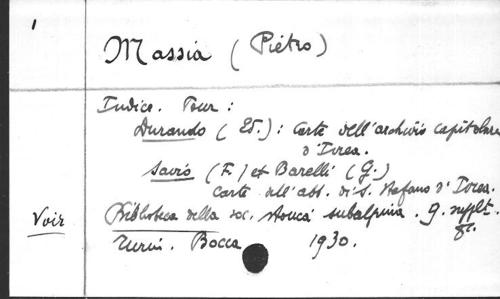 1
Massia (Piètro)
Indice. Pour :
Durando (Ed.) : Carte dell'archivio capitolare
d'Ivrea.
Savio (F.) et Barelli (G.)
Carte dell'abb. di S. Stefano d'Ivrea.
Voir Biblioteca della soc. storica subalpina. 9. supplt.
Turin. Bocca 1930.